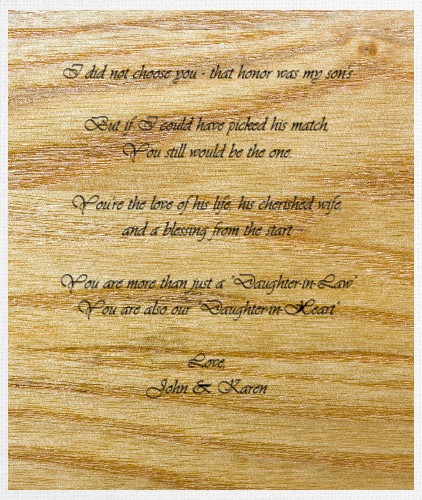 I did not choose you - that honor was my son's
But if I could have picked his match,
You still would be the one.
You're the love of his life, his cherished wife,
and a blessing from the start -
You are more than just a "Daughter-in-Law"
You are also our "Daughter-in-Heart"
Love,
John & Karen